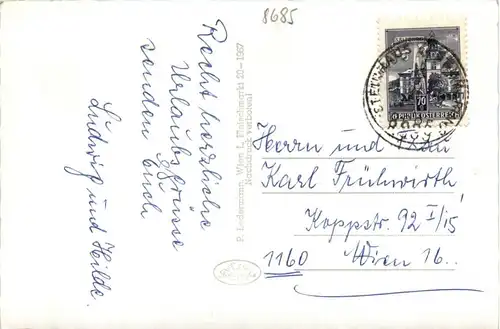 8685
Recht herzliche
Urlaubsgrüsse
senden Euch
Ludwig und Hilde.
P. Ledermann, Wien I, Fleischmarkt 20 - 1967
Nachdruck verboten!
STEINHAUS
70
REPUBLIK ÖSTERREICH
Herrn und Frau
Karl Frühwirth
Koppstr. 92 I/15
1160 Wien 16.